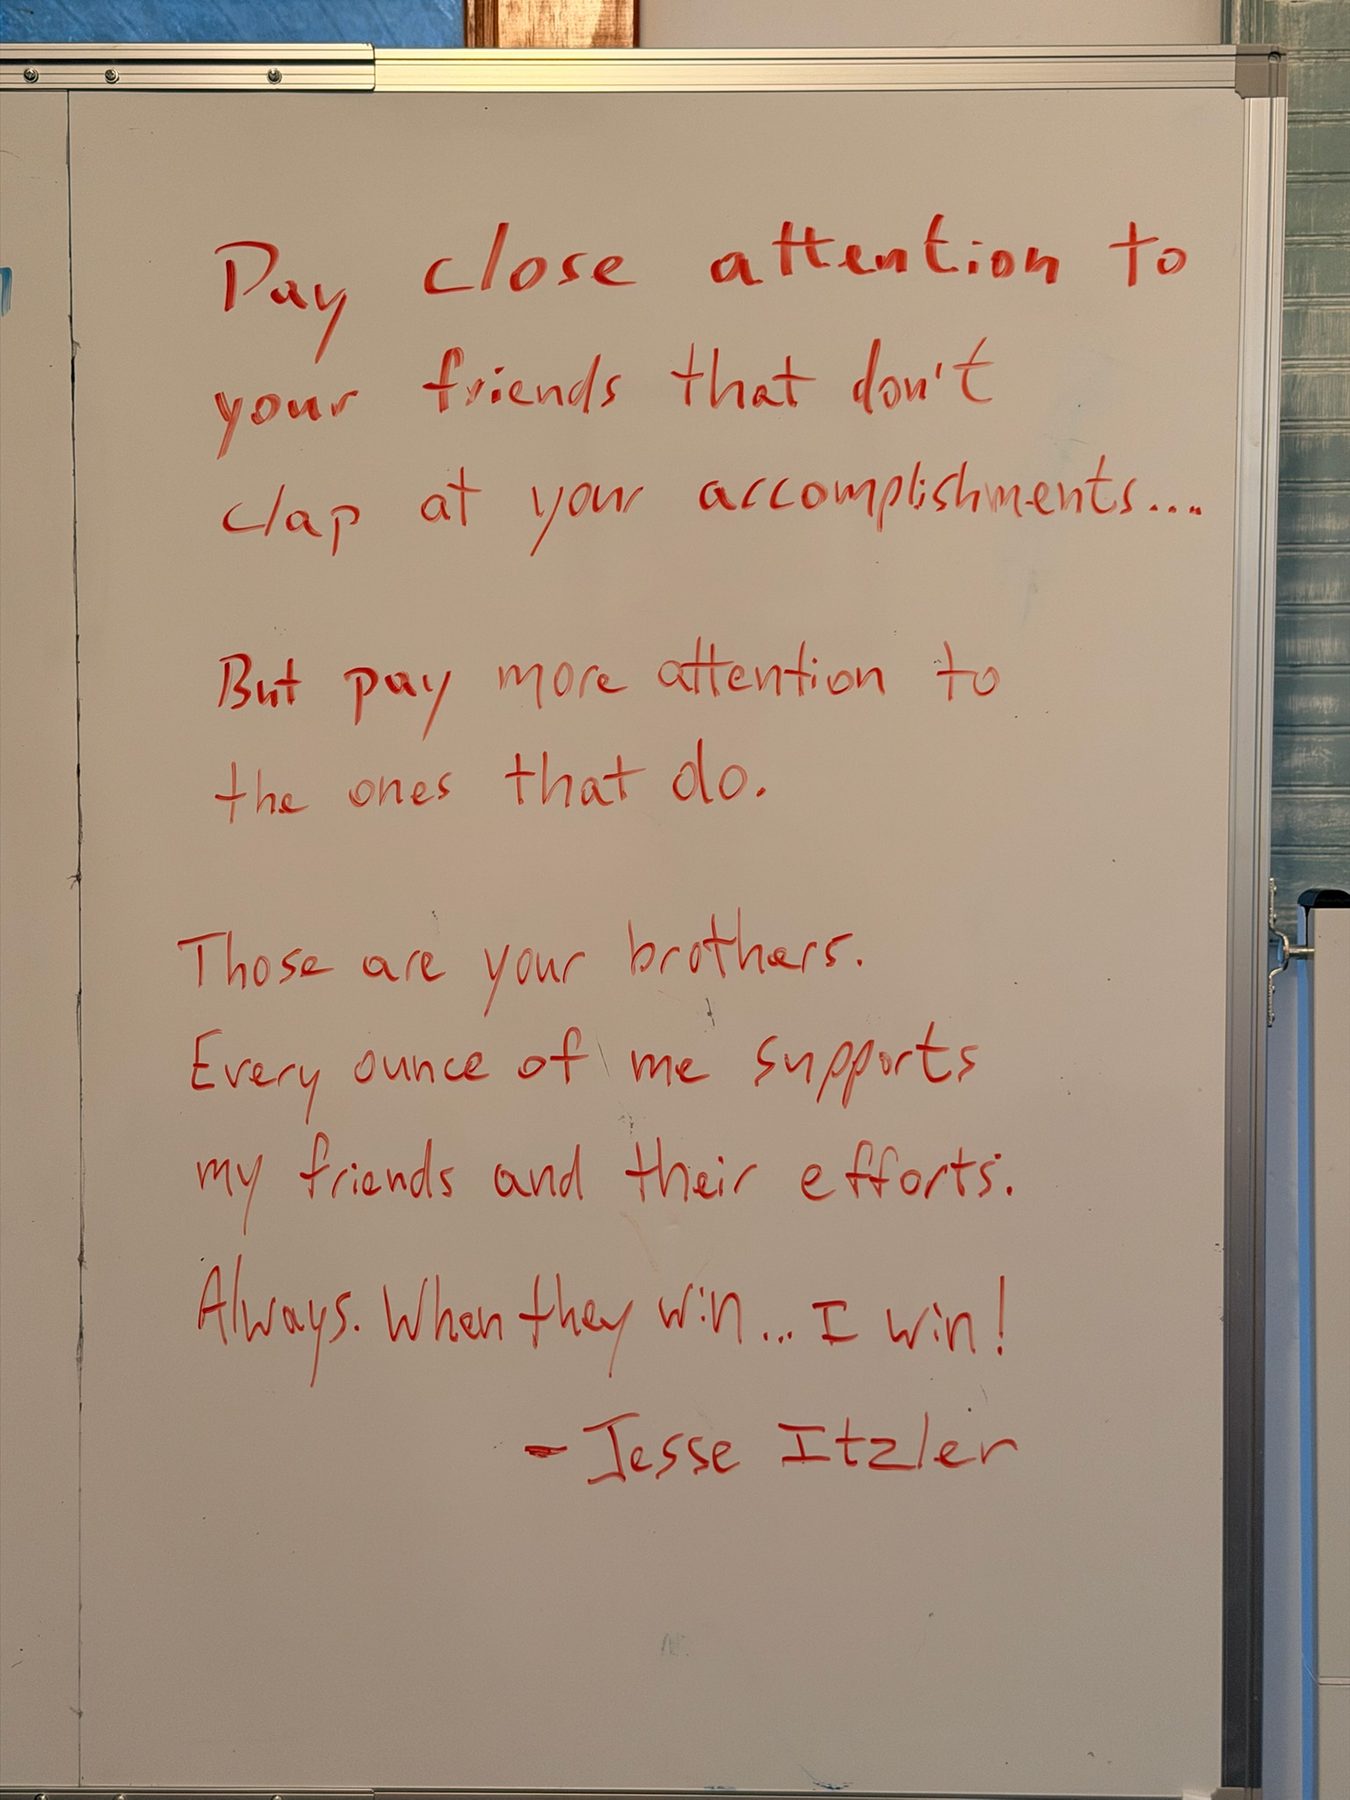 Pay close attention to
your friends that don't
clap at your accomplishments....
But pay more attention to
the ones that do.
Those are your brothers.
Every ounce of me supports
my friends and their efforts.
Always. When they win... I win!
- Jesse Itzler